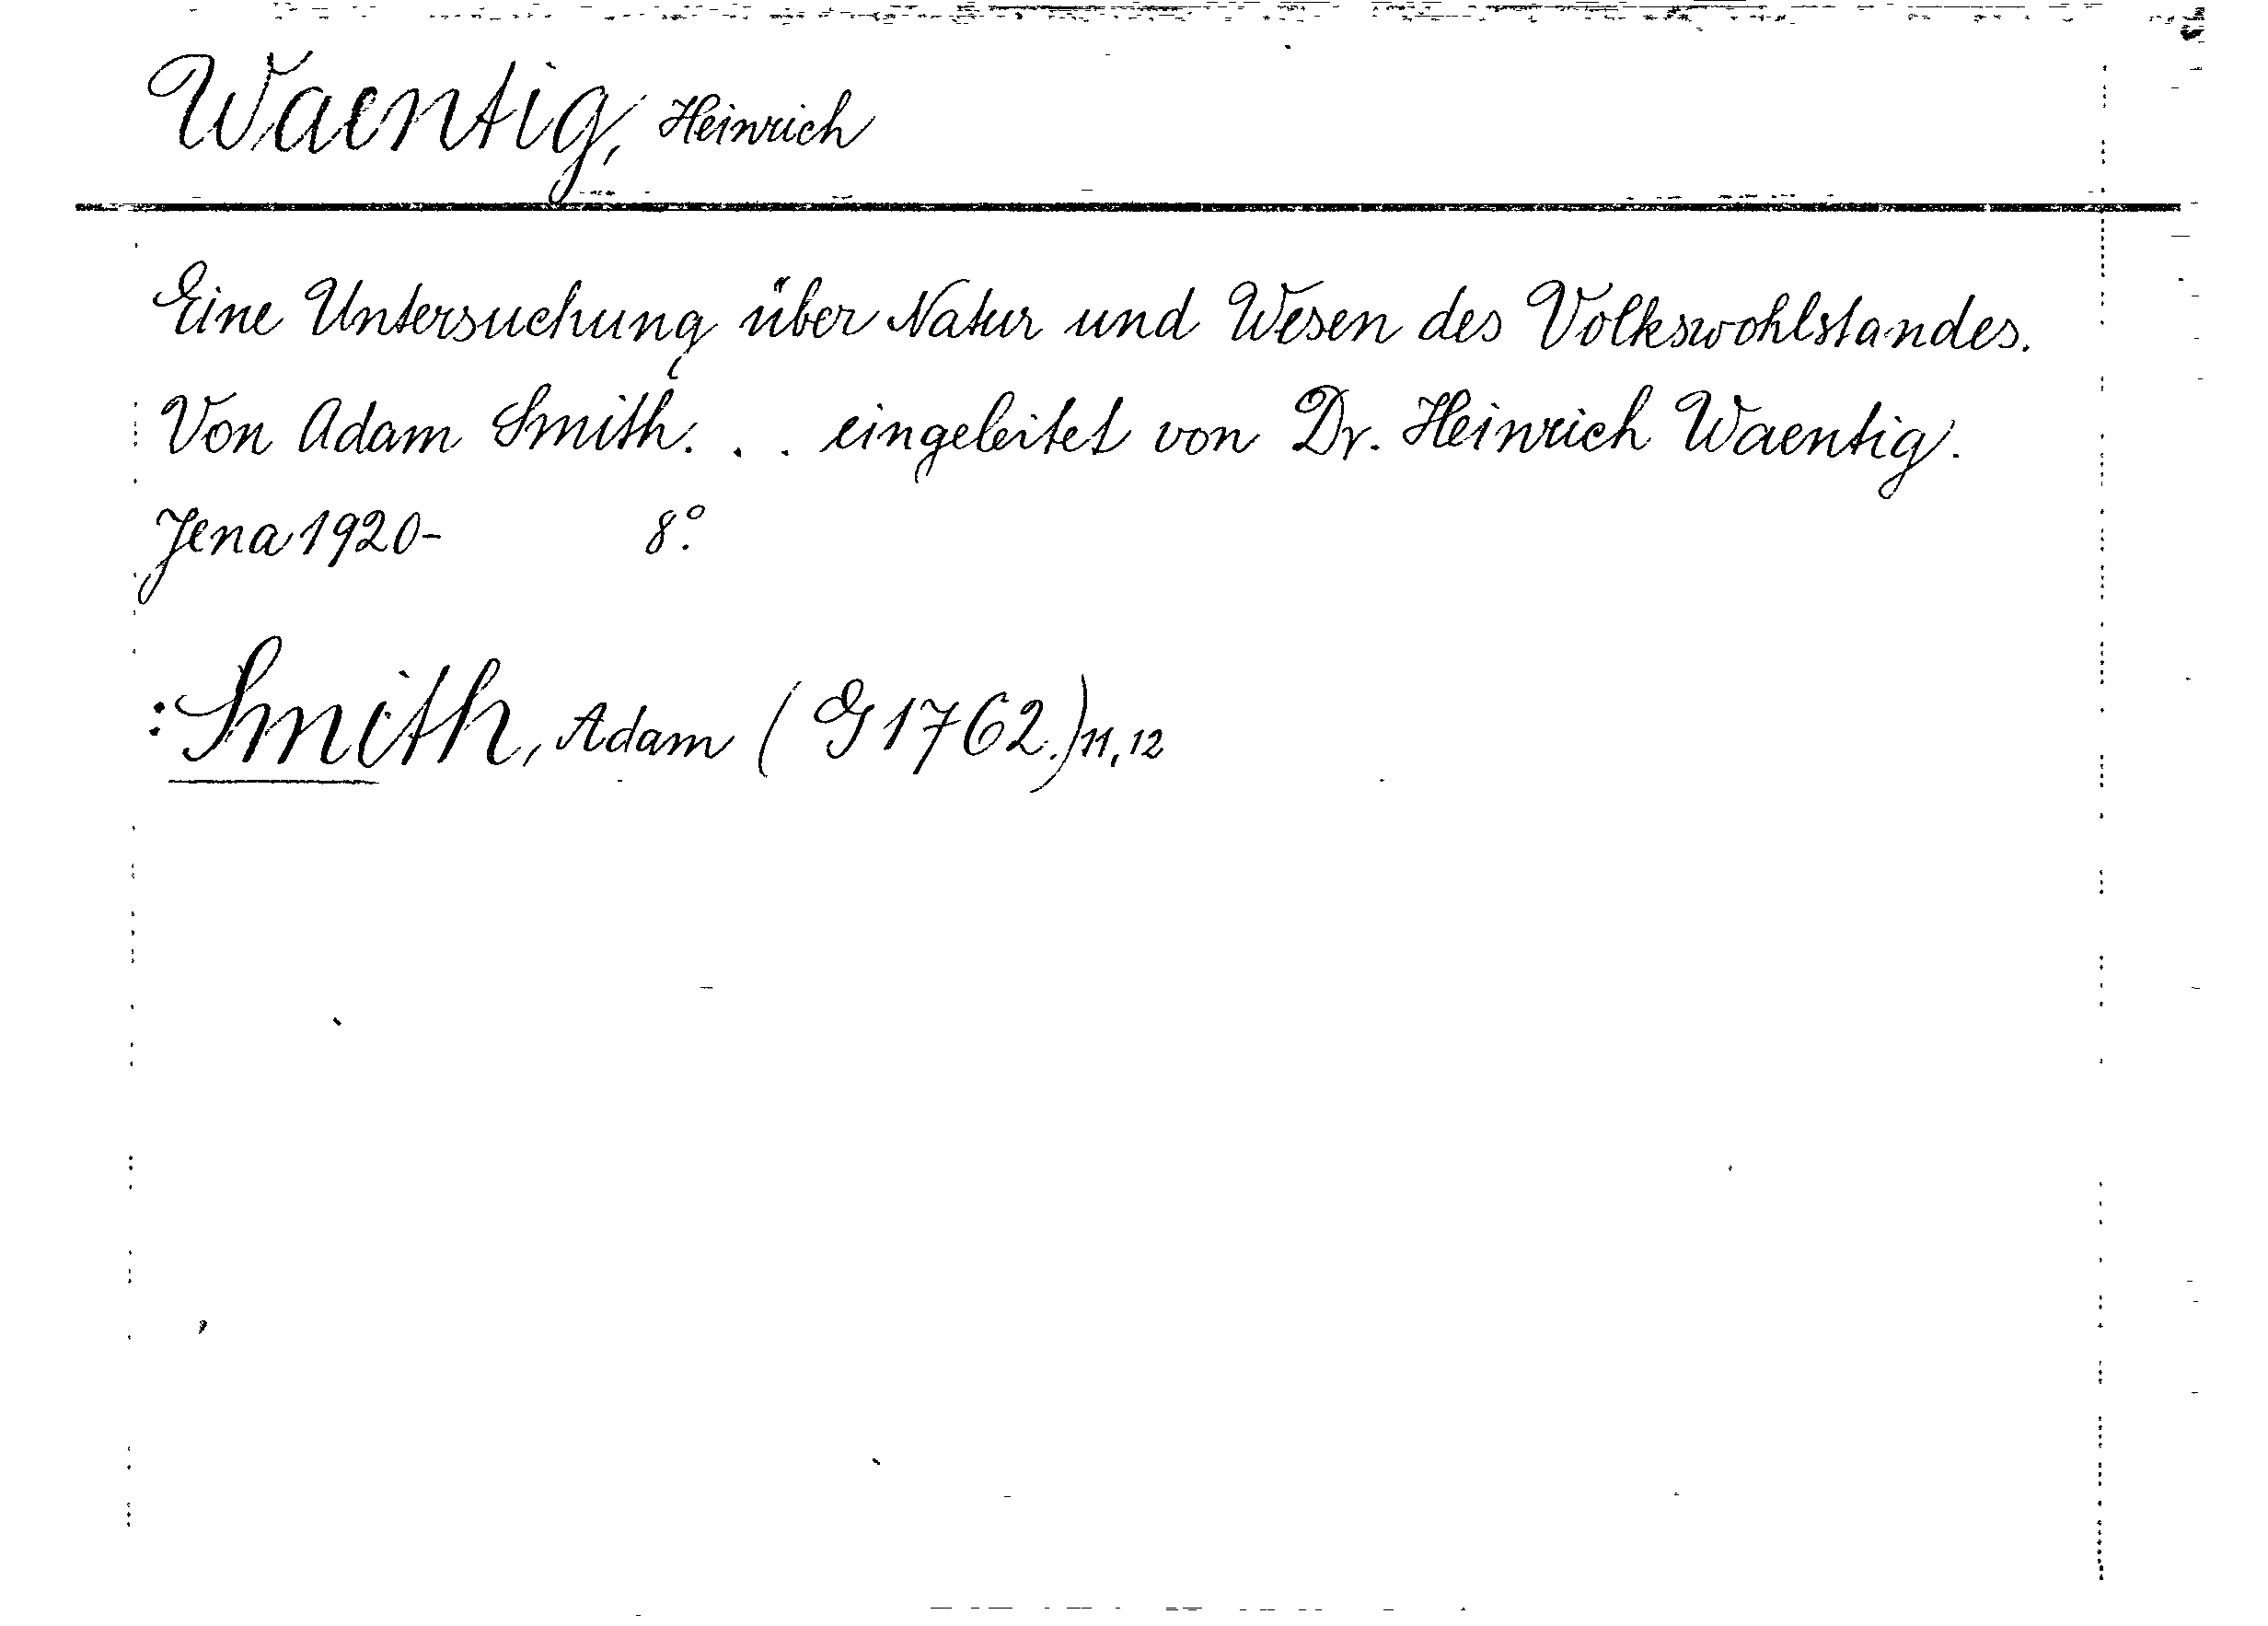 Waentig, Heinrich
Eine Untersuchung über Natur und Wesen des Volkswohlstandes.
Von Adam Smith... eingeleitet von Dr. Heinrich Waentig.
Jena 1920- 8°.
:Smith, Adam (G 1762.) 11, 12